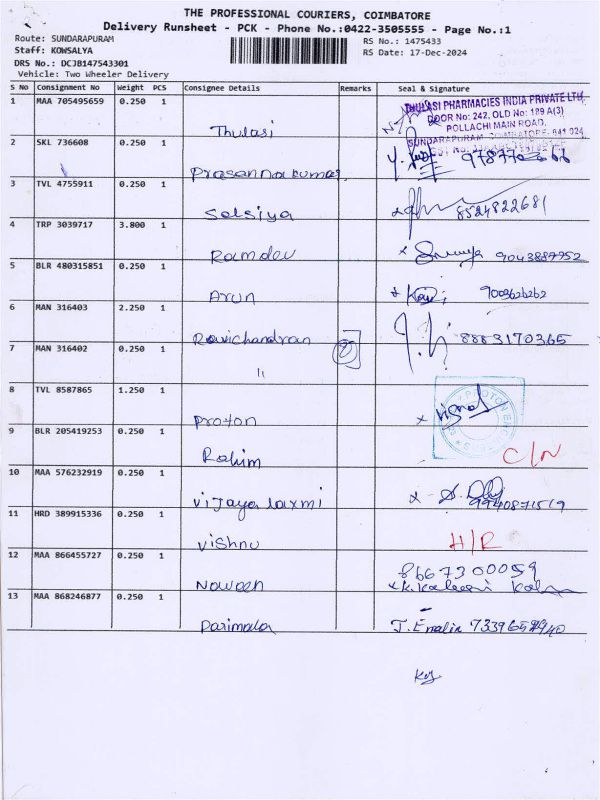 THE PROFESSIONAL COURIERS, COIMBATORE
Delivery Runsheet - PCK - Phone No.:0422-3505555 - Page No.:1
Route: SUNDARAPURAM RS No.: 1475433
Staff: KOWSALYA RS Date: 17-Dec-2024
DRS No.: DCJB147543301
Vehicle: Two Wheeler Delivery
S No Consignment No Weight PCS Consignee Details Remarks Seal & Signature
1 MAA 705495659 0.250 1 Thulasi
THULASI PHARMACIES INDIA PRIVATE LTD.
DOOR No: 242, OLD No: 189 A(3)
POLLACHI MAIN ROAD,
SUNDARAPURAM, COIMBATORE- 641 024
2 SKL 736608 0.250 1 Prasannakumar
3 TVL 4755911 0.250 1 Selsiya 8524822681
4 TRP 3039717 3.800 1 Ramdev 9043887952
5 BLR 480315851 0.250 1 Arun 9003626262
6 MAN 316403 2.250 1 Ravichandran 8883170365
7 MAN 316402 0.250 1 " 2
8 TVL 8587865 1.250 1 Proton
9 BLR 205419253 0.250 1 Rahim C/N
10 MAA 576232919 0.250 1 Vijaya laxmi 9940871519
11 HRD 389915336 0.250 1 Vishnu H/R
12 MAA 866455727 0.250 1 Naveen 8667300059
13 MAA 868246877 0.250 1 Parimala